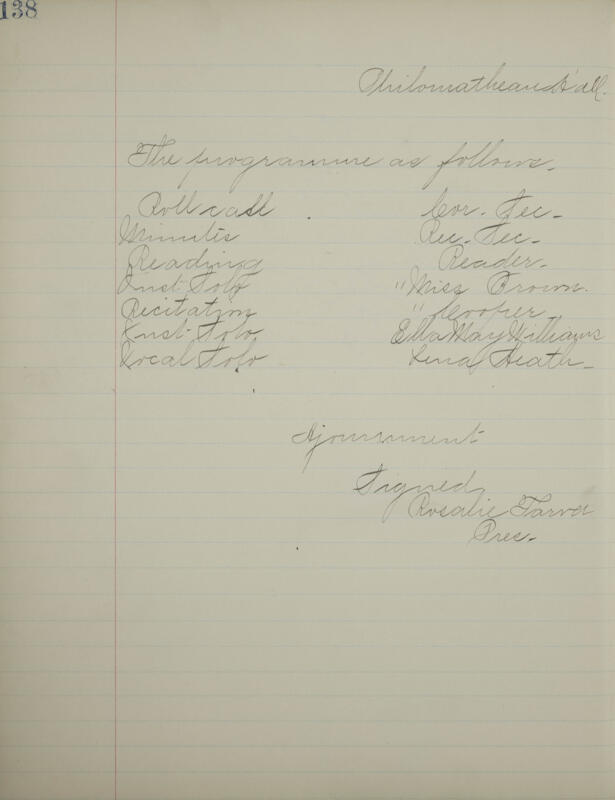 138
Philomathean Hall.
The programme as follows.
Roll call Cor. Sec-
Minutes Rec. Sec-
Reading Reader-
Inst. Solo "Miss Brown.
Recitation " Cooper
Inst. Solo Ella May Williams
Vocal Solo Lena Heath-
Ajournment
Signed
Rosalie Tarver
Pres-